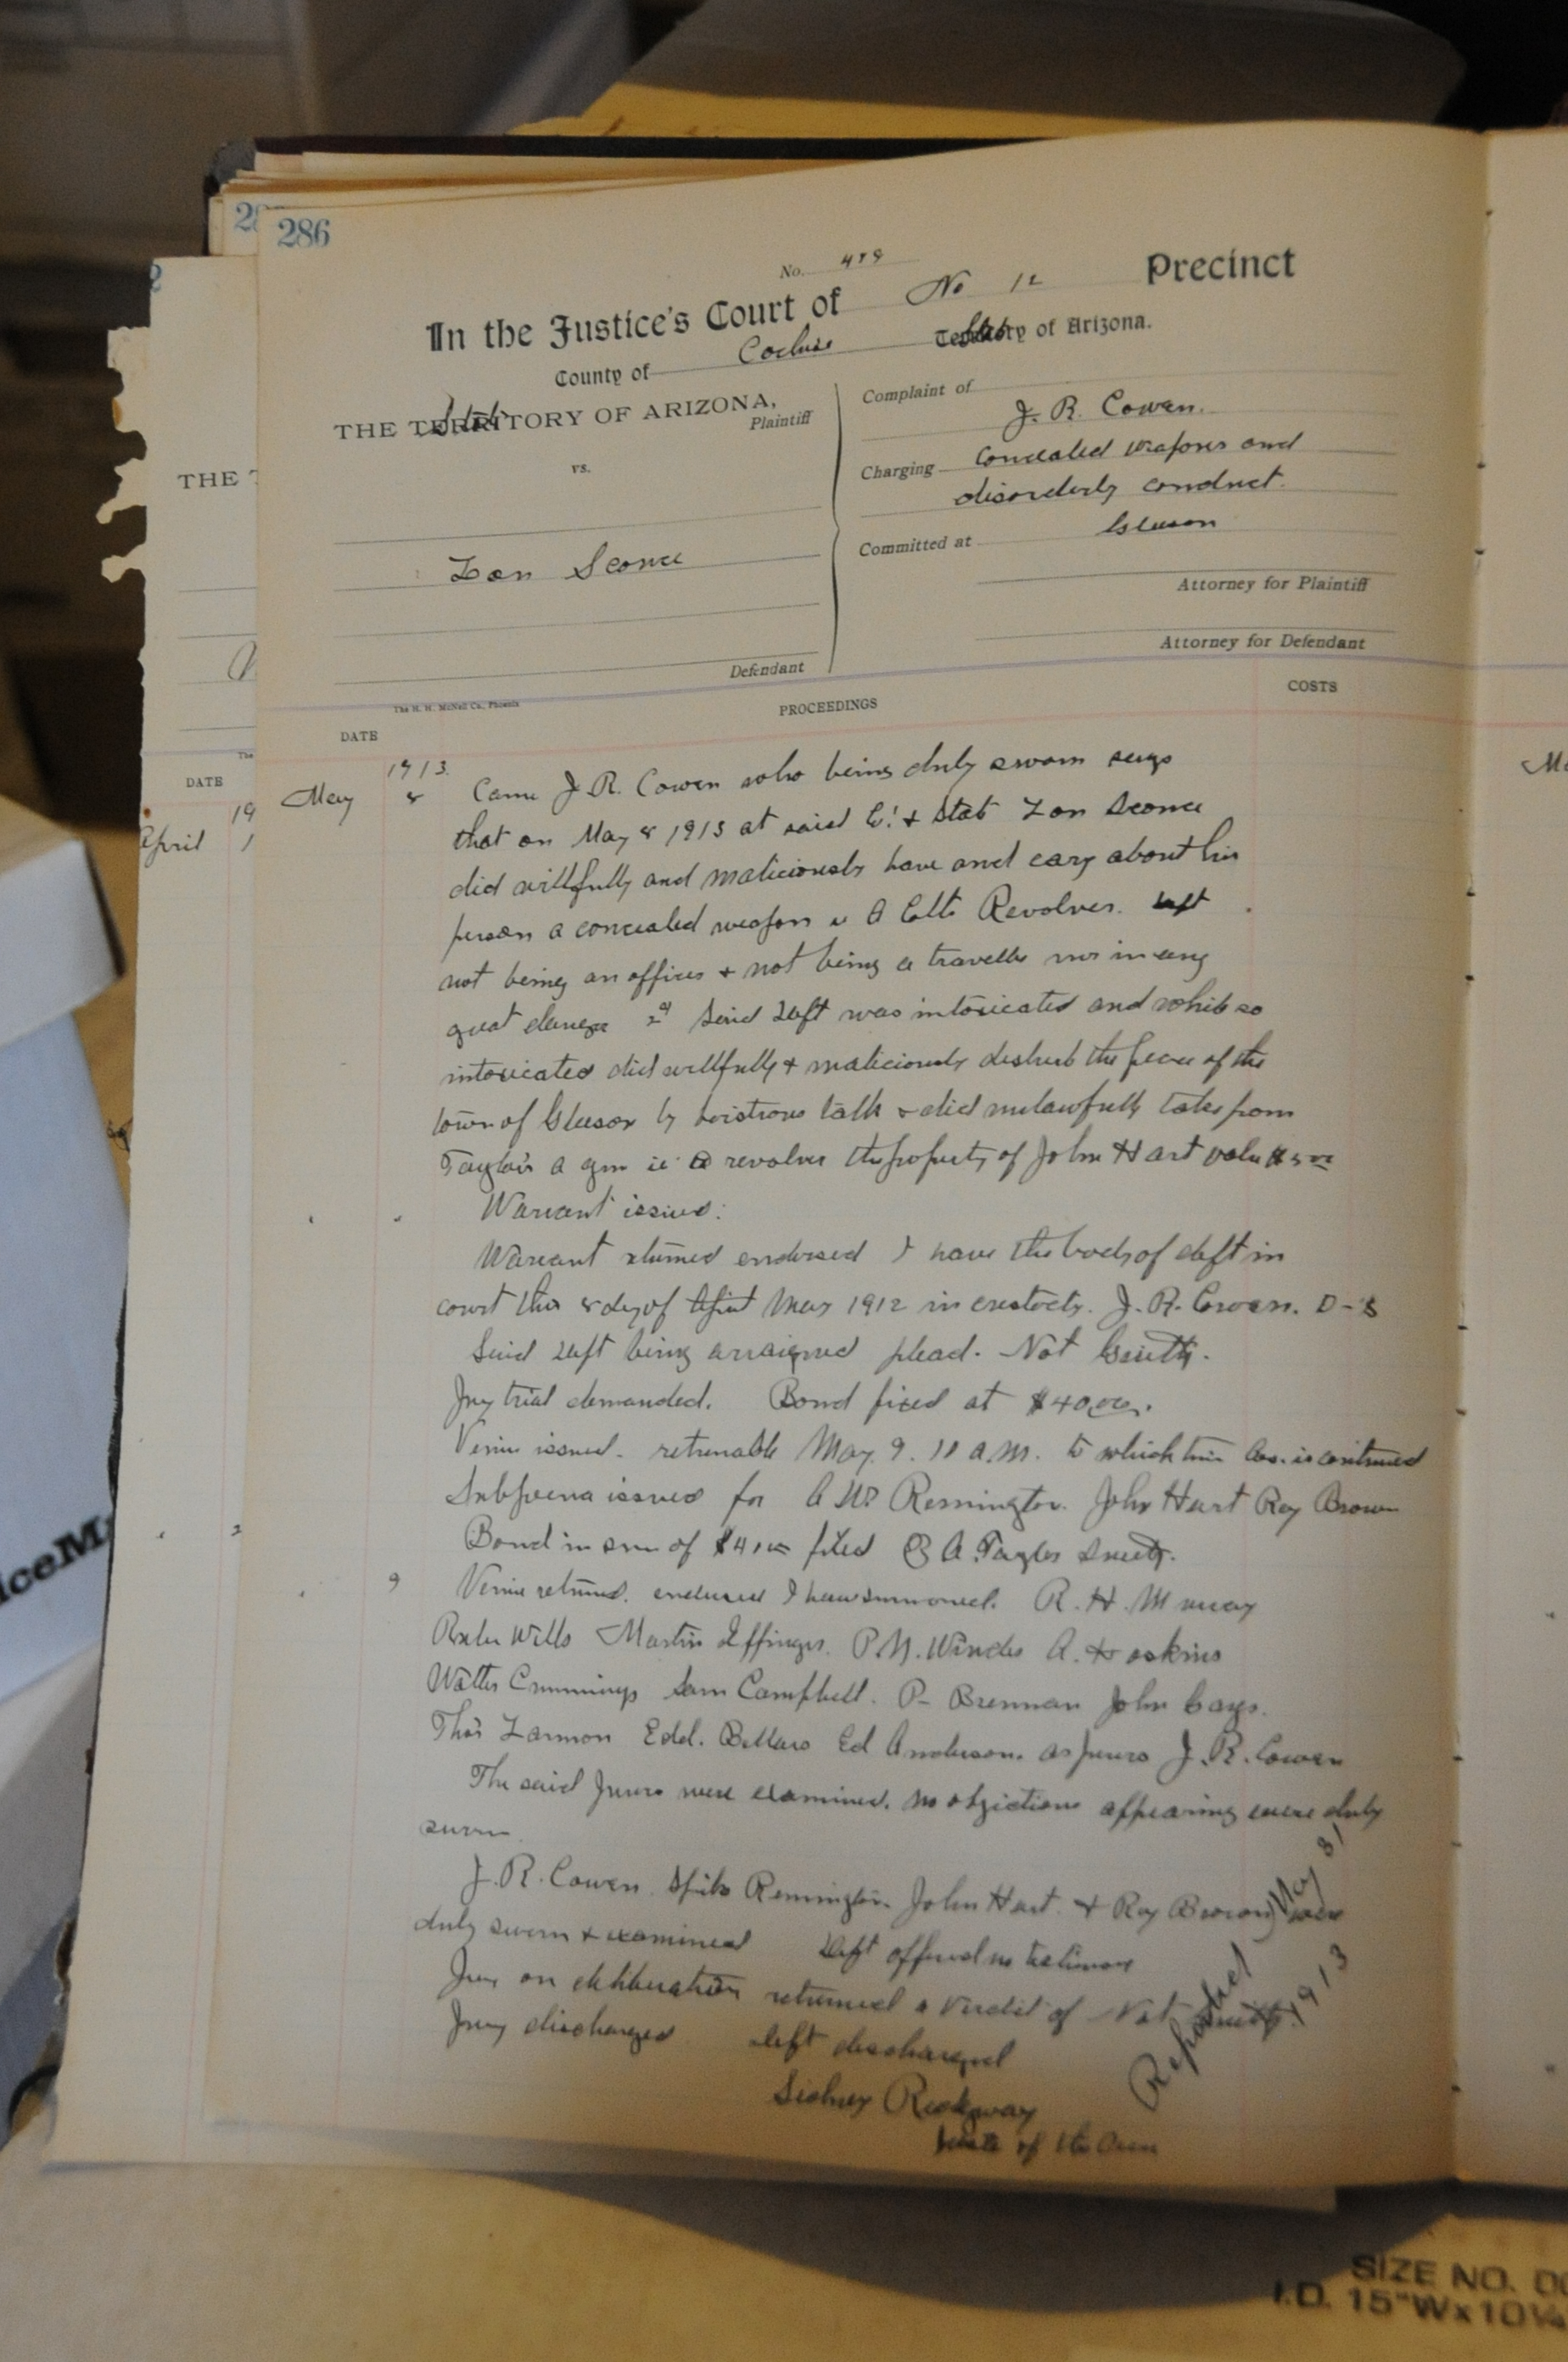 286
No. 479
In the Justice's Court of No 12 Precinct
County of Cochise State of Arizona.
THE TERRITORY OF ARIZONA,
State
Plaintiff
vs.
Lon Sconce
Defendant
Complaint of
J. R. Cowen.
Charging Concealed weapons and
disorderly conduct.
Committed at Gleeson
Attorney for Plaintiff
Attorney for Defendant
The H. H. McNeil Co., Phoenix
DATE
PROCEEDINGS
COSTS
1913.
May 8 Came J. R. Cowen who being duly sworn says
that on May 8 1913 at said Co. & State Lon Sconce
did willfully and maliciously have and cary about his
person a concealed weapon ie A Colts Revolver. deft
not being an officer & not being a traveller nor in any
great danger 2d Said Deft was intoxicated and while so
intoxicated did willfully & maliciously desturb the peace of the
town of Gleeson by boistrous talk & did unlawfully take from
Taylor's a gun ie a revolver the property of John Hart value $5.00
Warrant issued:
Warrant returned endorsed I have the body of deft in
court this 8 day of May 1912 in custody. J. R. Cowen. D-S
Said Deft being arraigned plead. Not Guilty.
Jury trial demanded. Bond fixed at $40.00.
Venire issued. returnable May. 9. 10 a.m. to which time Cas. is continued
Subpoena issued for A W Remington. John Hart Roy Brown
Bond in sum of $40.00 filed A. Taylor Surety.
9 Venire returned. endorsed I have summoned. R. H. Murray
Wills Martin Effinger. P. N. Windes A. Hoskins
Walter Cummings Sam Campbell. P- Brennan John Cays.
Thos Larmon Edd. Bellars Ed Anderson. as jurors J. R. Cowen
The said Jurors were examined. no objections appearing were duly
sworn
J. R. Cowen. Remington. John Hart. & Roy Brown were
duly sworn & examined Deft offered no testimony
Jury on deliberation returned a Verdict of Not Guilty.
Jury discharged Deft discharged
Sidney
of the Peace
Reported May 31
1913
THE T
DATE
19
April 1
ceM
SIZE NO. DO
I.D. 15"Wx10¼